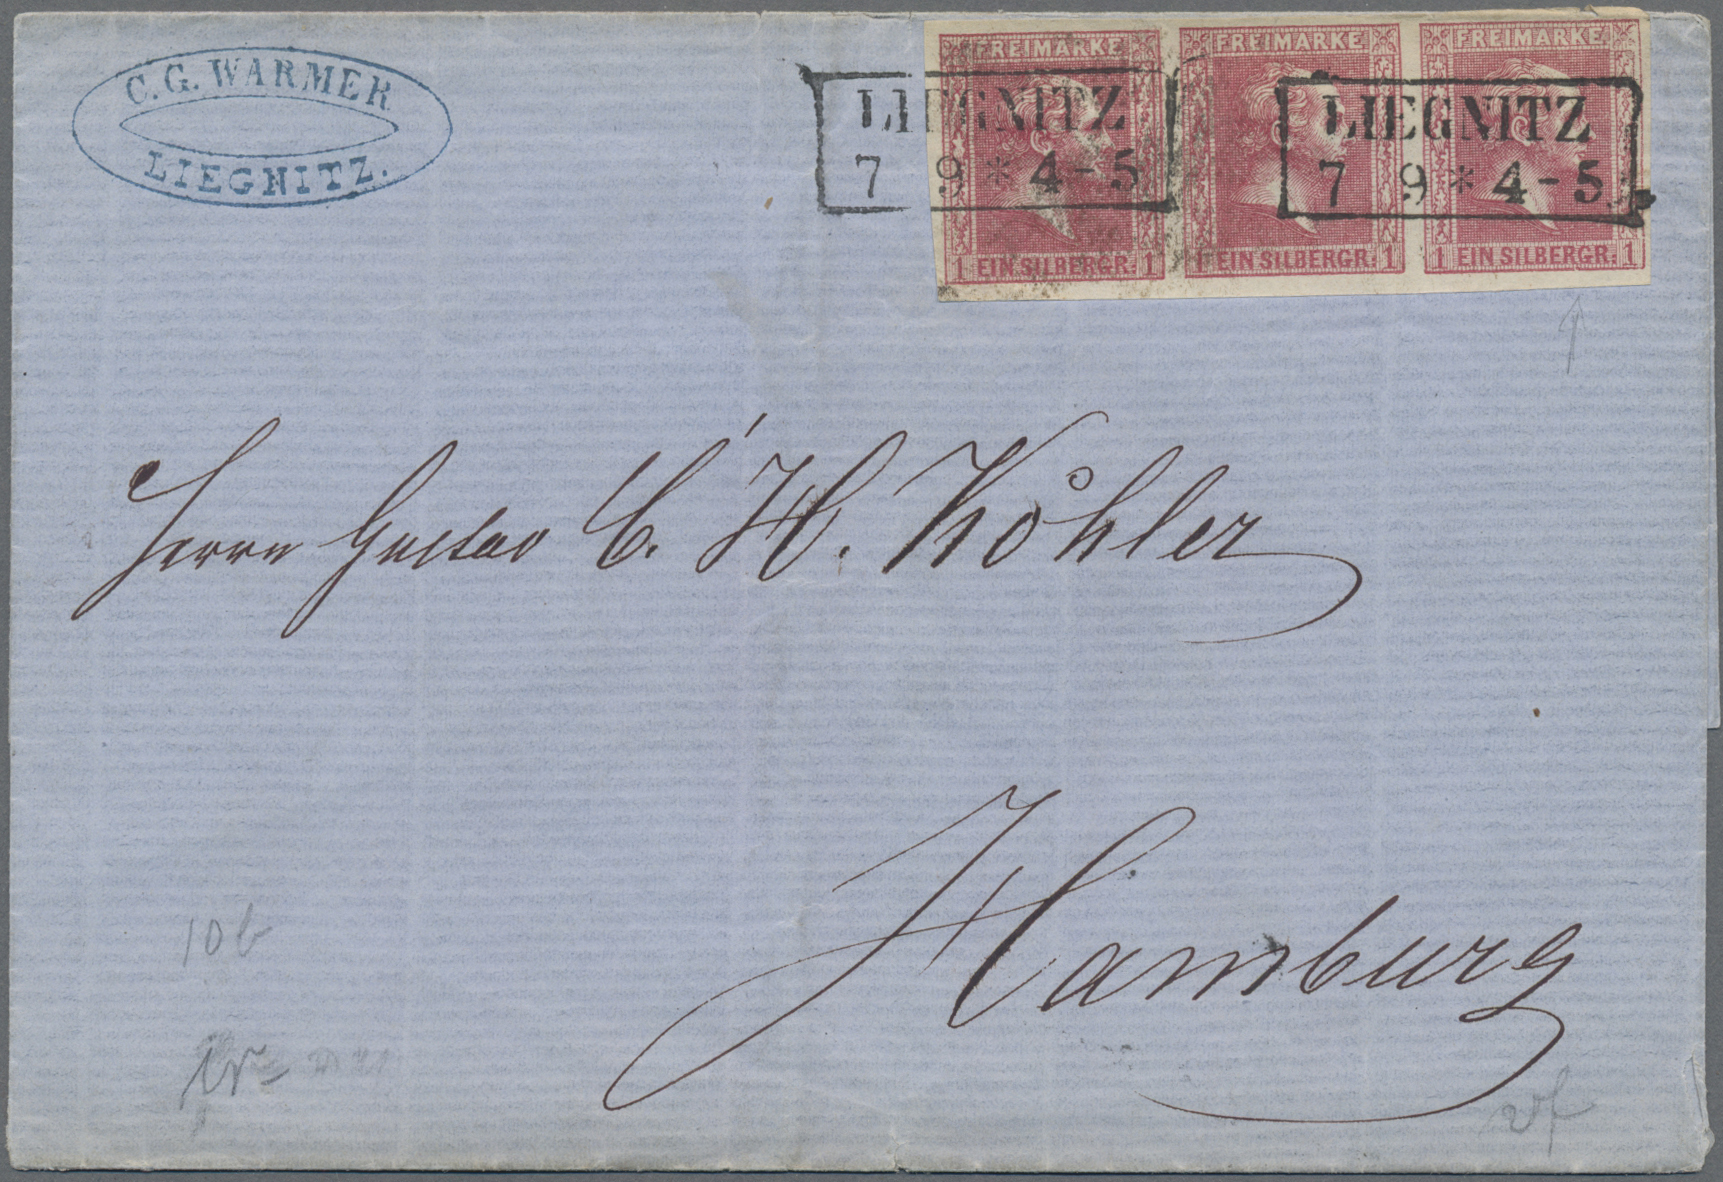 C.G. WARMER
LIEGNITZ.
FREIMARKE FREIMARKE FREIMARKE
LIEGNITZ
7 9 * 4-5
LIEGNITZ
7 9 * 4-5
1 EIN SILBERGR. 1
1 EIN SILBERGR. 1
1 EIN SILBERGR. 1
Herrn Gustav C. H. Köhler
Hamburg
10b